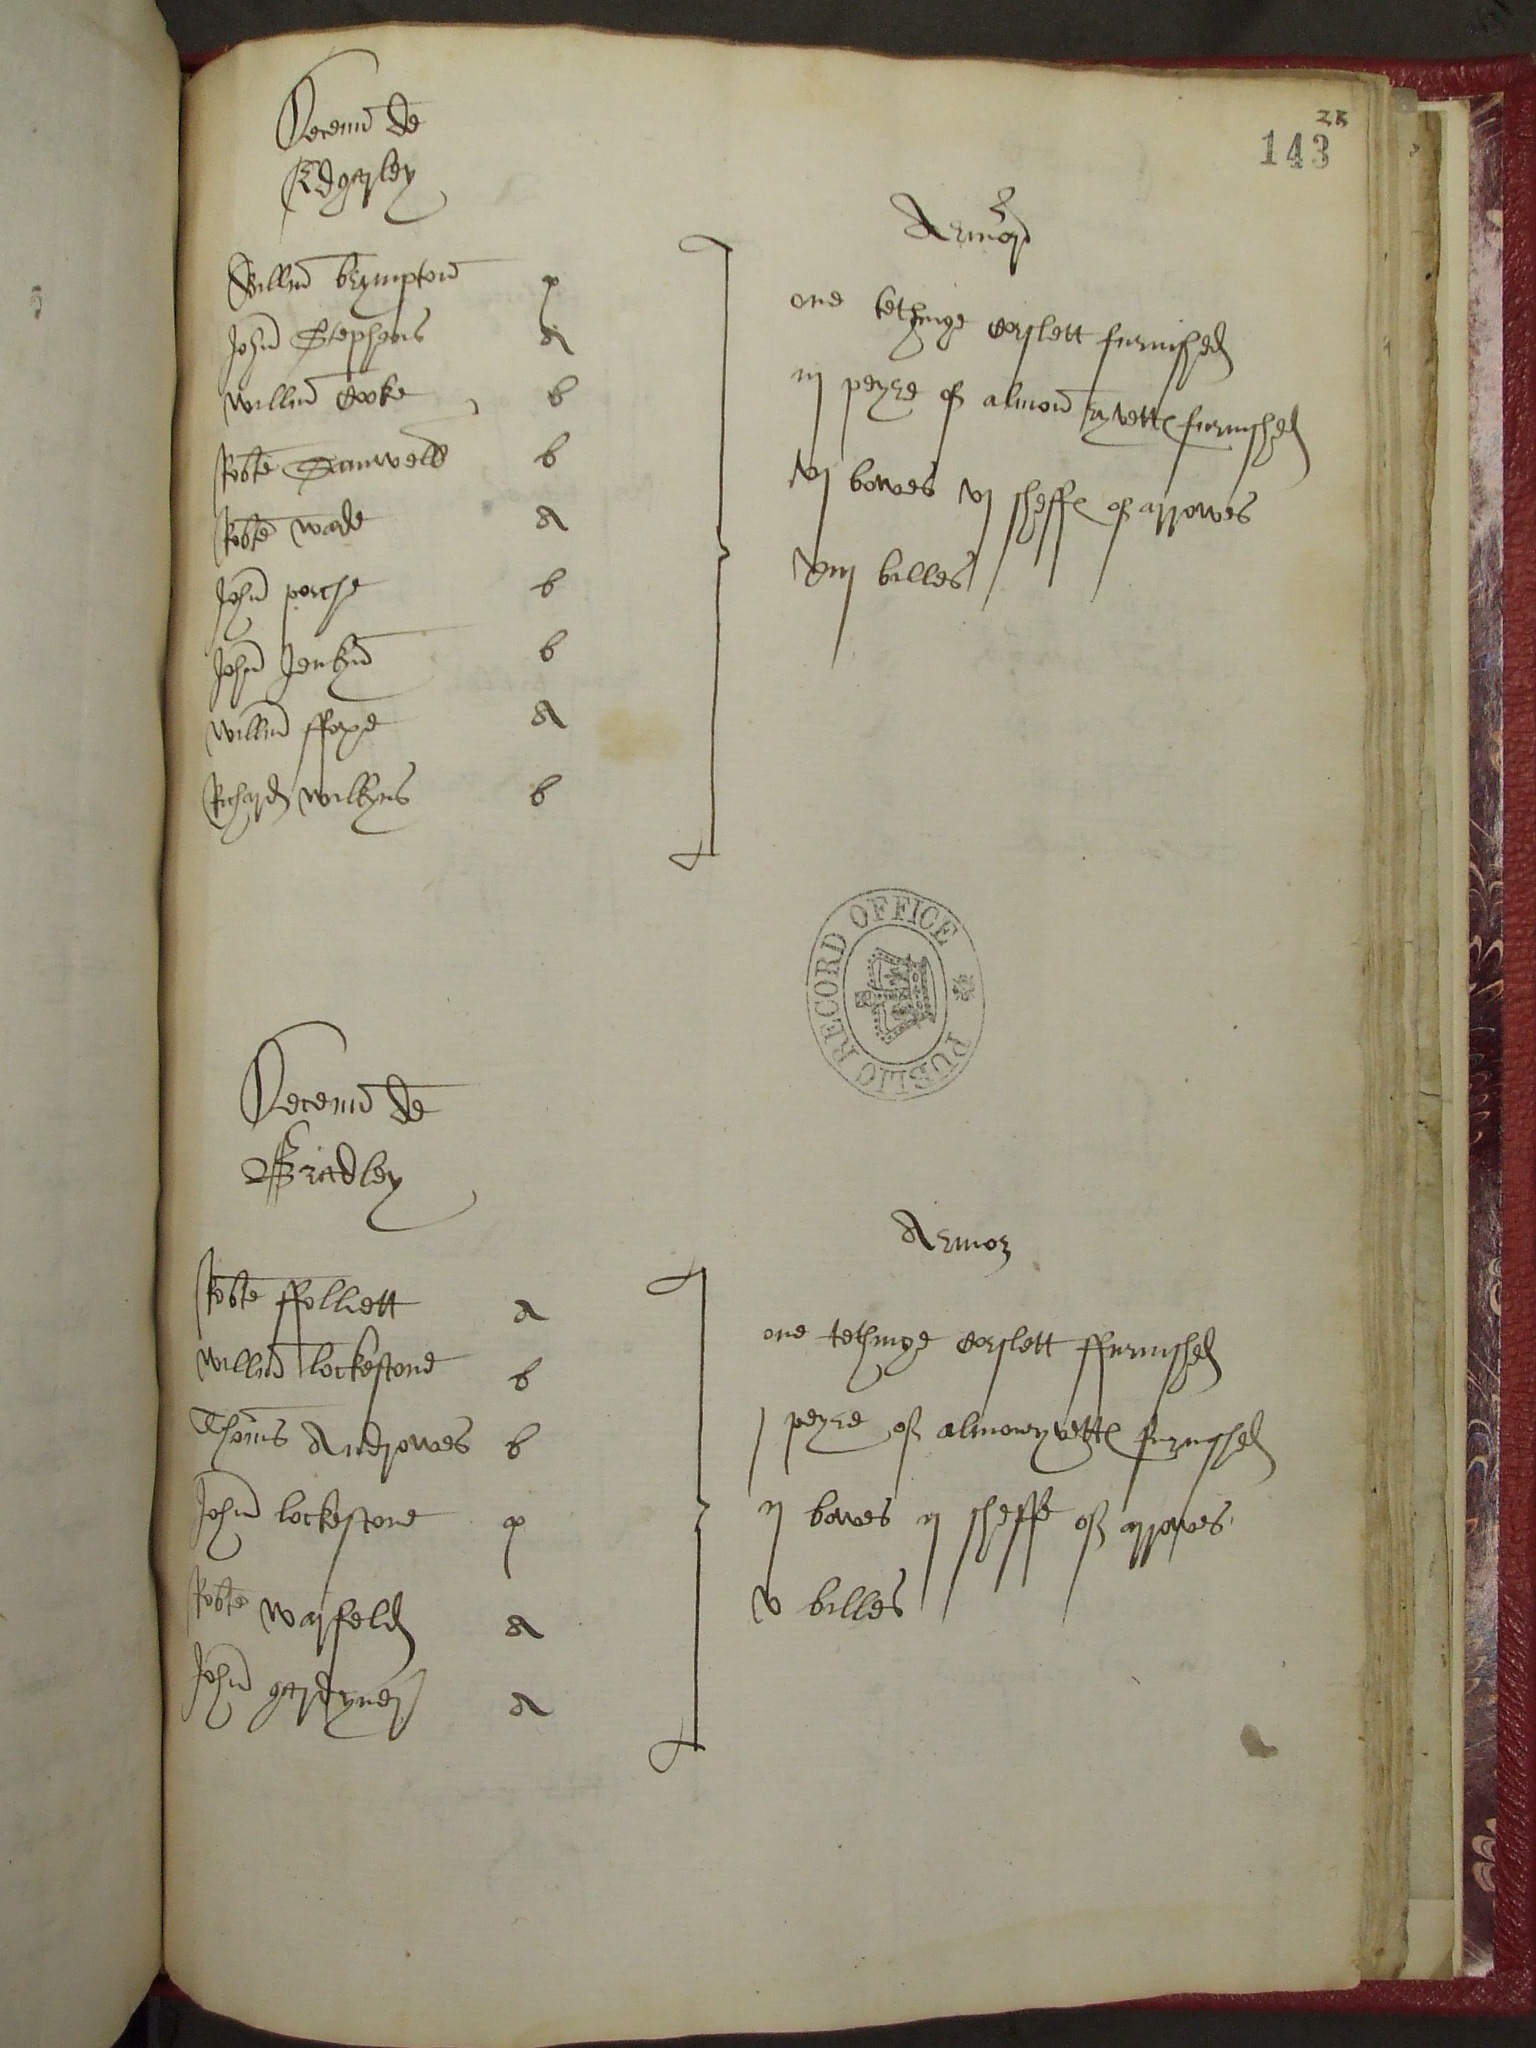 143
Decenn de
Edgarley
Armor
Willm brympton p
John Stephens a
Willm Cooke b
Robte Samwels b
Robte wade a
John porche b
John Jenkyn b
Willm ffoxe a
Richard wilkyns b
one tethinge Corslett furnished
iij peyre of almon ryvettes furnished
vj bowes vj sheffes of arrowes
viij billes
PUBLIC RECORD OFFICE
Decenn de
Bradley
Armor
Robte ffolliett a
Willm lockestone b
Thoms Androwes b
John lockestone p
Robte warfeld a
John gardyner a
one tethinge Corslett ffurnished
j peyre of almonryvettes furnyshed
ij bowes ij sheffe of arrowes
v billes